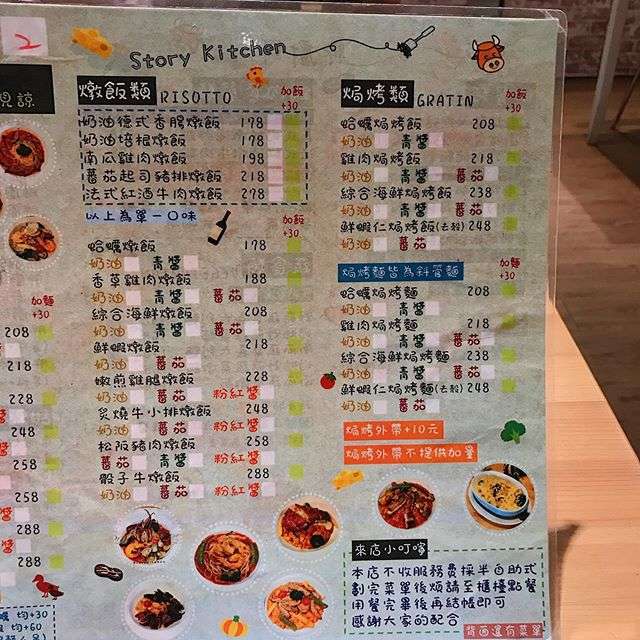 2
見諒
加麵
+30
208
218
228
248
248
258
258
288
288
均+30
均+60
Story Kitchen
燉飯類 RISOTTO 加飯
+30
奶油德式香腸燉飯 178
奶油培根燉飯 198
南瓜雞肉燉飯 198
蕃茄起司豬排燉飯 218
法式紅酒牛肉燉飯 278
以上為單一口味
加飯
+30
蛤蠣燉飯 178
奶油 青醬
香草雞肉燉飯 188
奶油 青醬 蕃茄
綜合海鮮燉飯 208
奶油 青醬 蕃茄
鮮蝦燉飯 218
奶油 蕃茄
嫩煎雞腿燉飯 228
奶油 蕃茄 粉紅醬
炙燒牛小排燉飯 248
奶油 蕃茄 粉紅醬
松阪豬肉燉飯 258
蕃茄 青醬 粉紅醬
骰子牛燉飯 288
奶油 蕃茄 粉紅醬
焗烤類 GRATIN 加飯
+30
蛤蠣焗烤飯 208
奶油 青醬
雞肉焗烤飯 218
奶油 青醬 蕃茄
綜合海鮮焗烤飯 238
奶油 青醬 蕃茄
鮮蝦仁焗烤飯(去殼) 248
奶油 蕃茄
焗烤麵皆為斜管麵
加麵
+30
蛤蠣焗烤麵 208
奶油 青醬
雞肉焗烤麵 218
奶油 青醬 蕃茄
綜合海鮮焗烤麵 238
奶油 青醬 蕃茄
鮮蝦仁焗烤麵(去殼) 248
奶油 蕃茄
焗烤外帶+10元
焗烤外帶不提供加量
來店小叮嚀
本店不收服務費採半自助式
劃完菜單後煩請至櫃檯點餐
用餐完畢後再結帳即可
感謝大家的配合
背面還有菜單